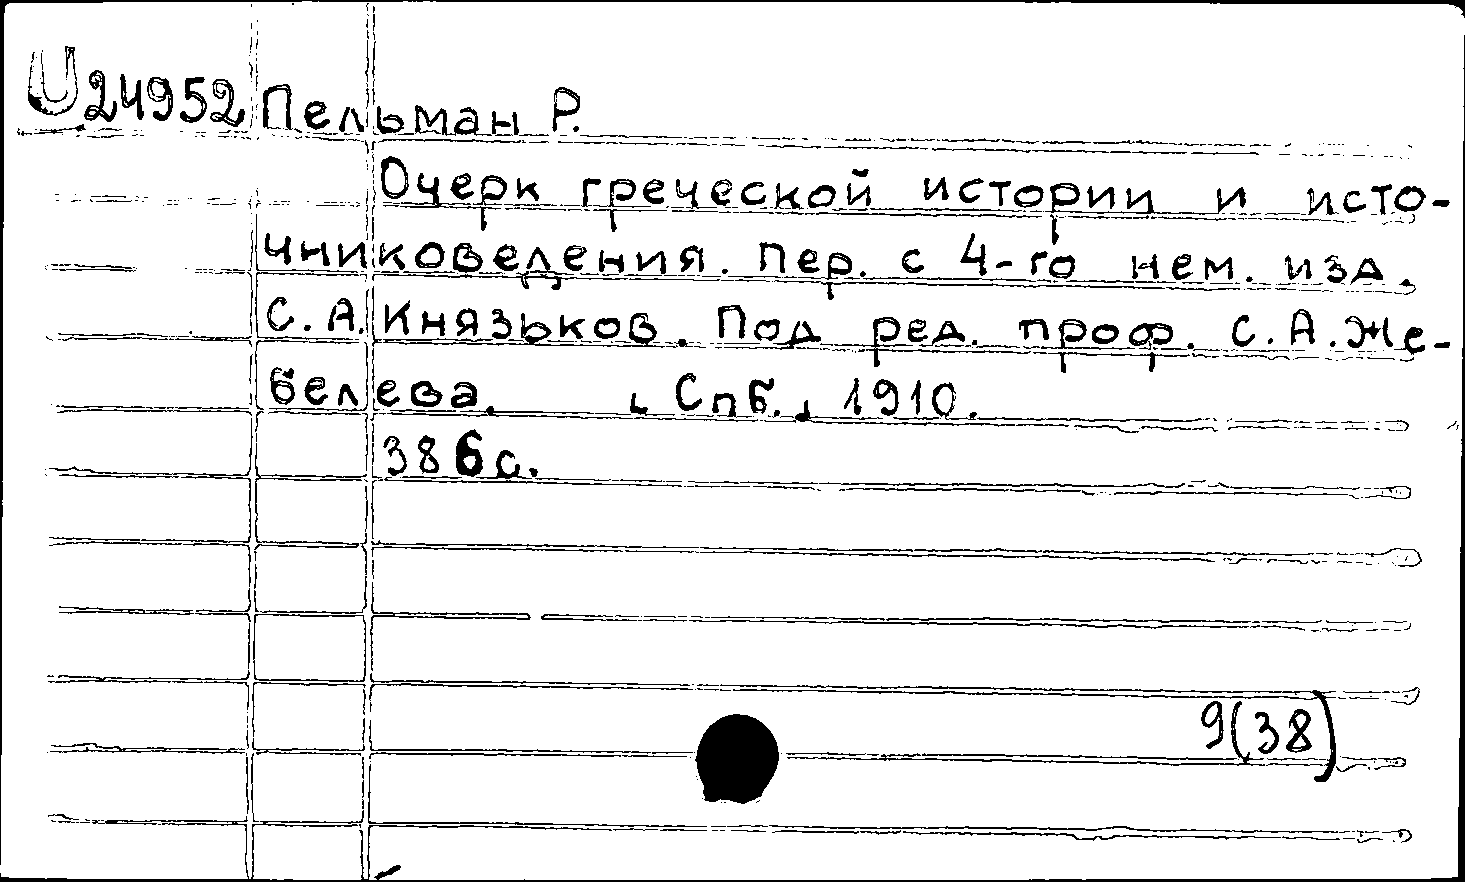 U24952 Пельман Р.
Очерк греческой истории и исто-
чниковедения. Пер. с 4-го нем. изд.
С.А. Князьков. Под ред. проф. С.А. Же-
белева. Спб., 1910.
386с.
9(38)